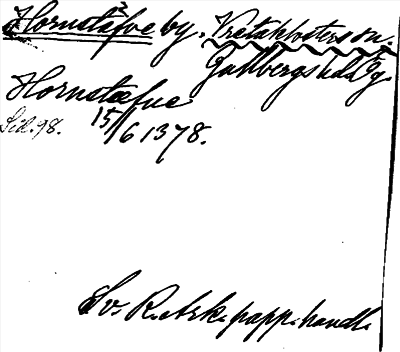 Hornstäfve by. Vretaklosters sn.
Gullbergs hd Ög.
Hornstæfue
Sid. 98. 15/6 1378.
Sv. R. ark. papp. handl.